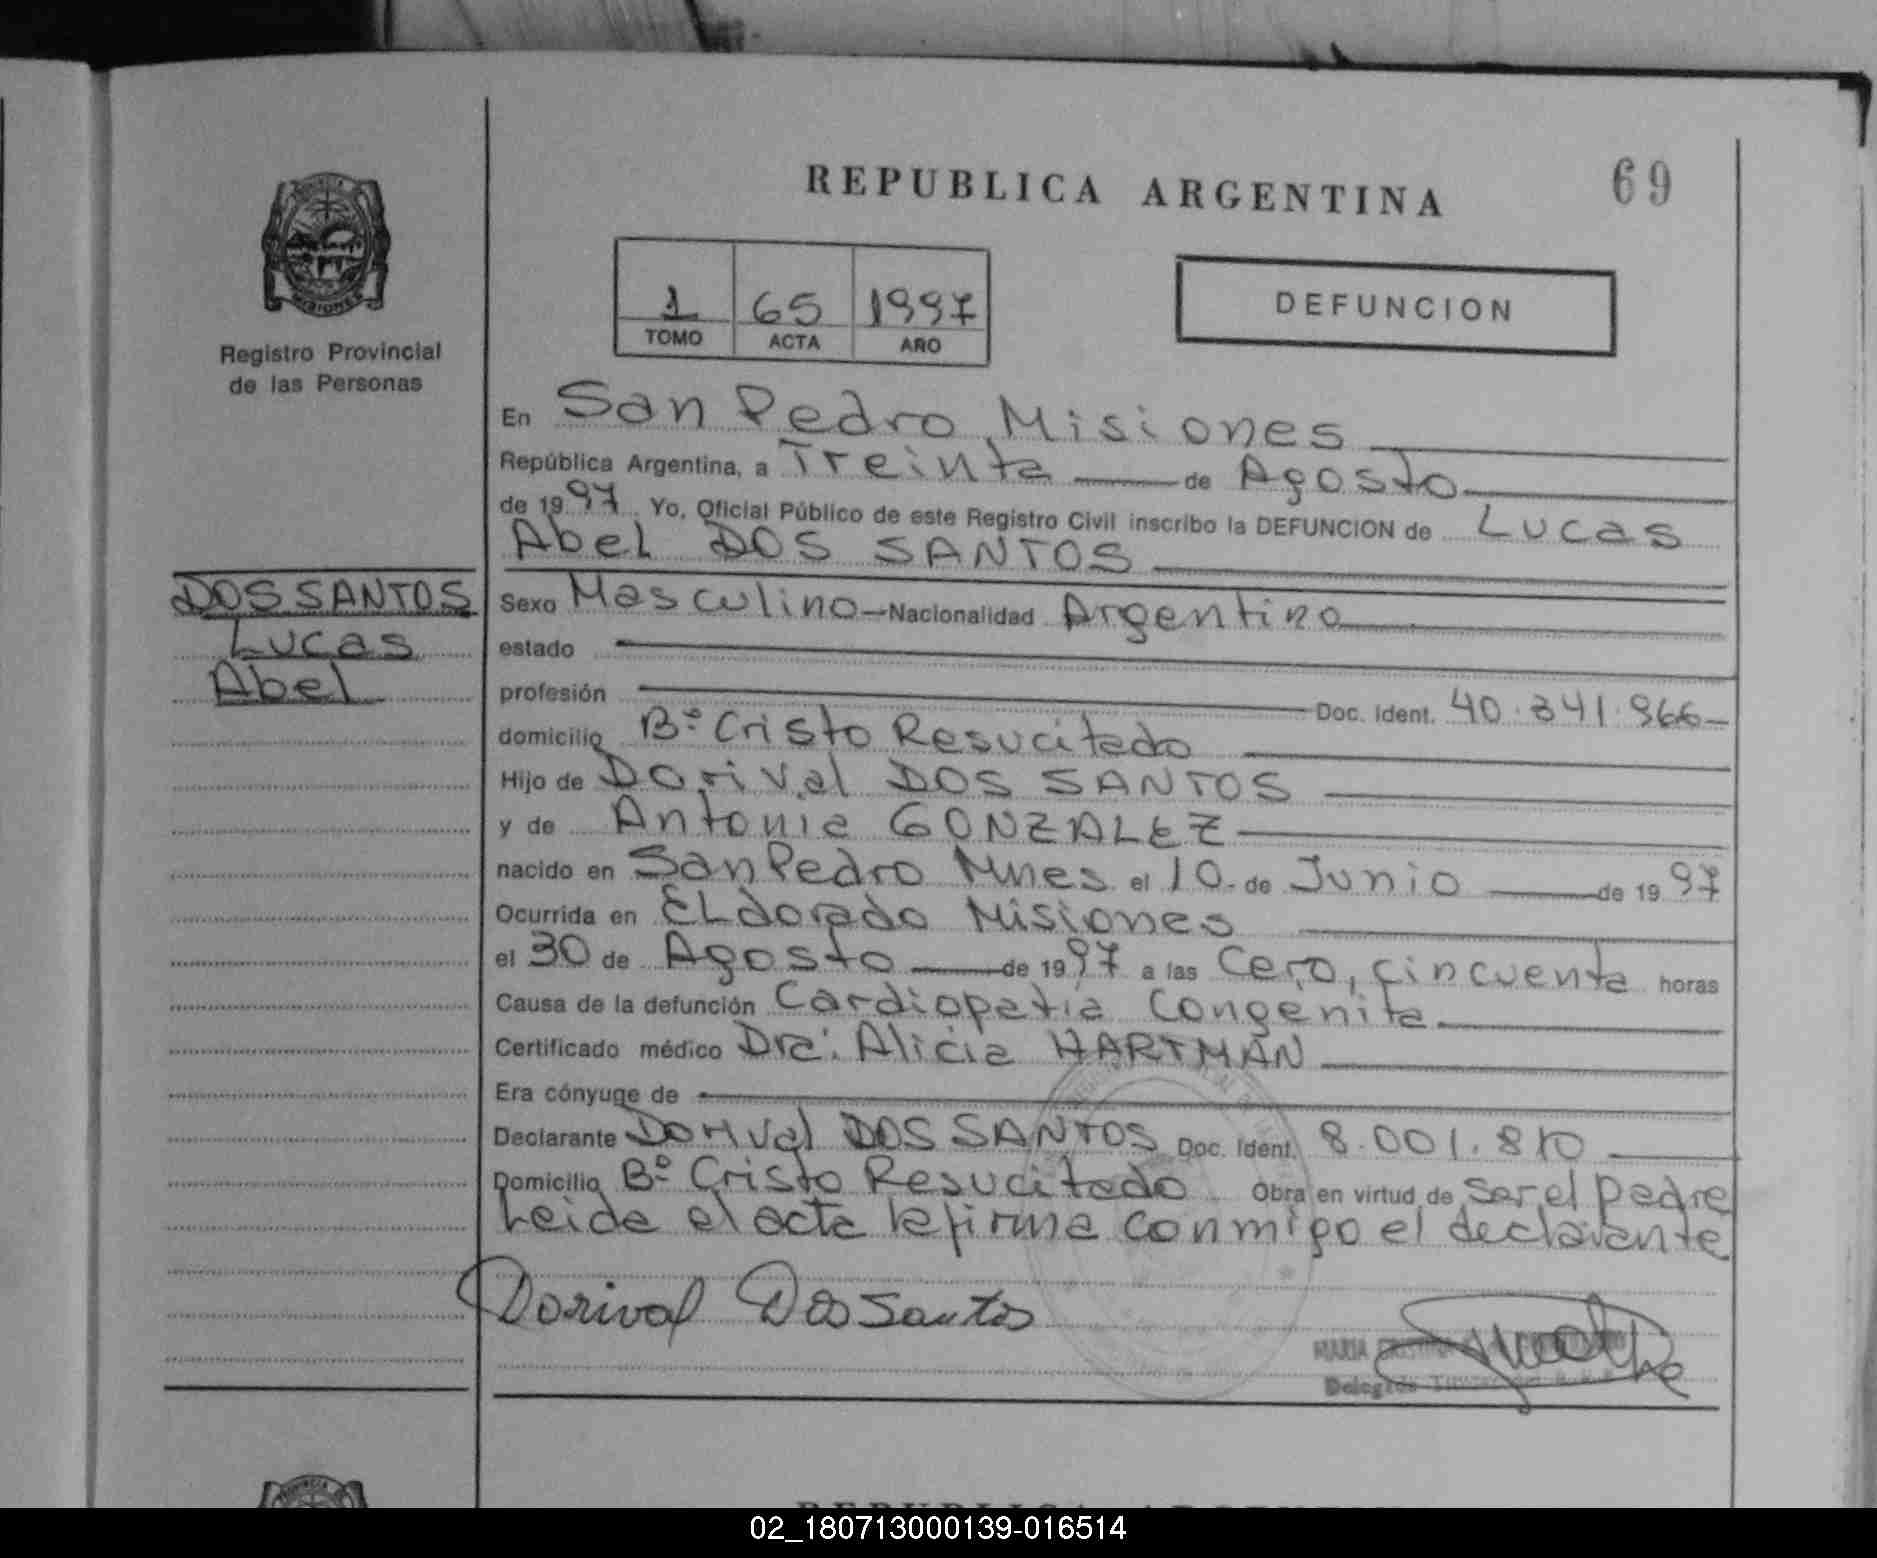 REPUBLICA ARGENTINA
69
Registro Provincial
de las Personas
1 65 1997
TOMO ACTA AÑO
DEFUNCION
En San Pedro, Misiones
República Argentina, a Treinta de Agosto
de 1997 Yo, Oficial Público de este Registro Civil inscribo la DEFUNCION de Lucas
Abel DOS SANTOS
DOS SANTOS
Lucas
Abel
Sexo Masculino Nacionalidad Argentino
estado
profesión Doc. Ident. 40.341.966
domicilio Bº Cristo Resucitado
Hijo de Dorival DOS SANTOS
y de Antonia GONZALEZ
nacido en San Pedro Mnes el 10 de Junio de 1997
Ocurrida en ELdorado Misiones
el 30 de Agosto de 1997 a las Cero, cincuenta horas
Causa de la defunción Cardiopatia Congenita
Certificado médico Dra: Alicia HARTMAN
Era cónyuge de
Declarante Dorival DOS SANTOS Doc. Ident. 8.001.810
Domicilio Bº Cristo Resucitado Obra en virtud de ser el padre
Leida el acta la firma conmigo el declarante
Dorival Dos Santos
MARIA
Delegada
02_180713000139-016514